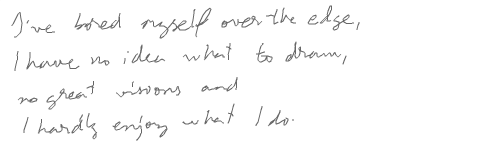 I've bored myself over the edge,
I have no idea what to draw,
no great visions and
I hardly enjoy what I do.